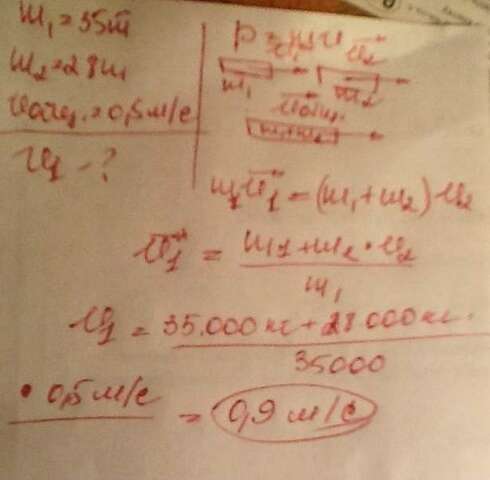 m₁ = 35т
m₂ = 28т
υобщ. = 0,5м/с
υ₁ - ?
p = mυ
υ₂
m₁
m₂
υобщ.
m₁+m₂
m₁υ₁ = (m₁+m₂) υ₂
υ₁ = m₁+m₂·υ₂
m₁
υ₁ = 35.000 кг + 28 000 кг ·
35000
· 0,5 м/с = 0,9 м/с